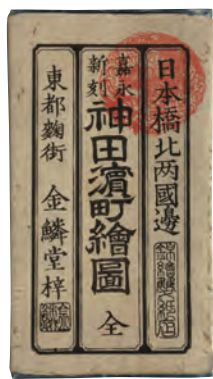 日本橋北两國邊
嘉永新刻
神田濱町繪圖 全
東都麴街 金鱗堂梓